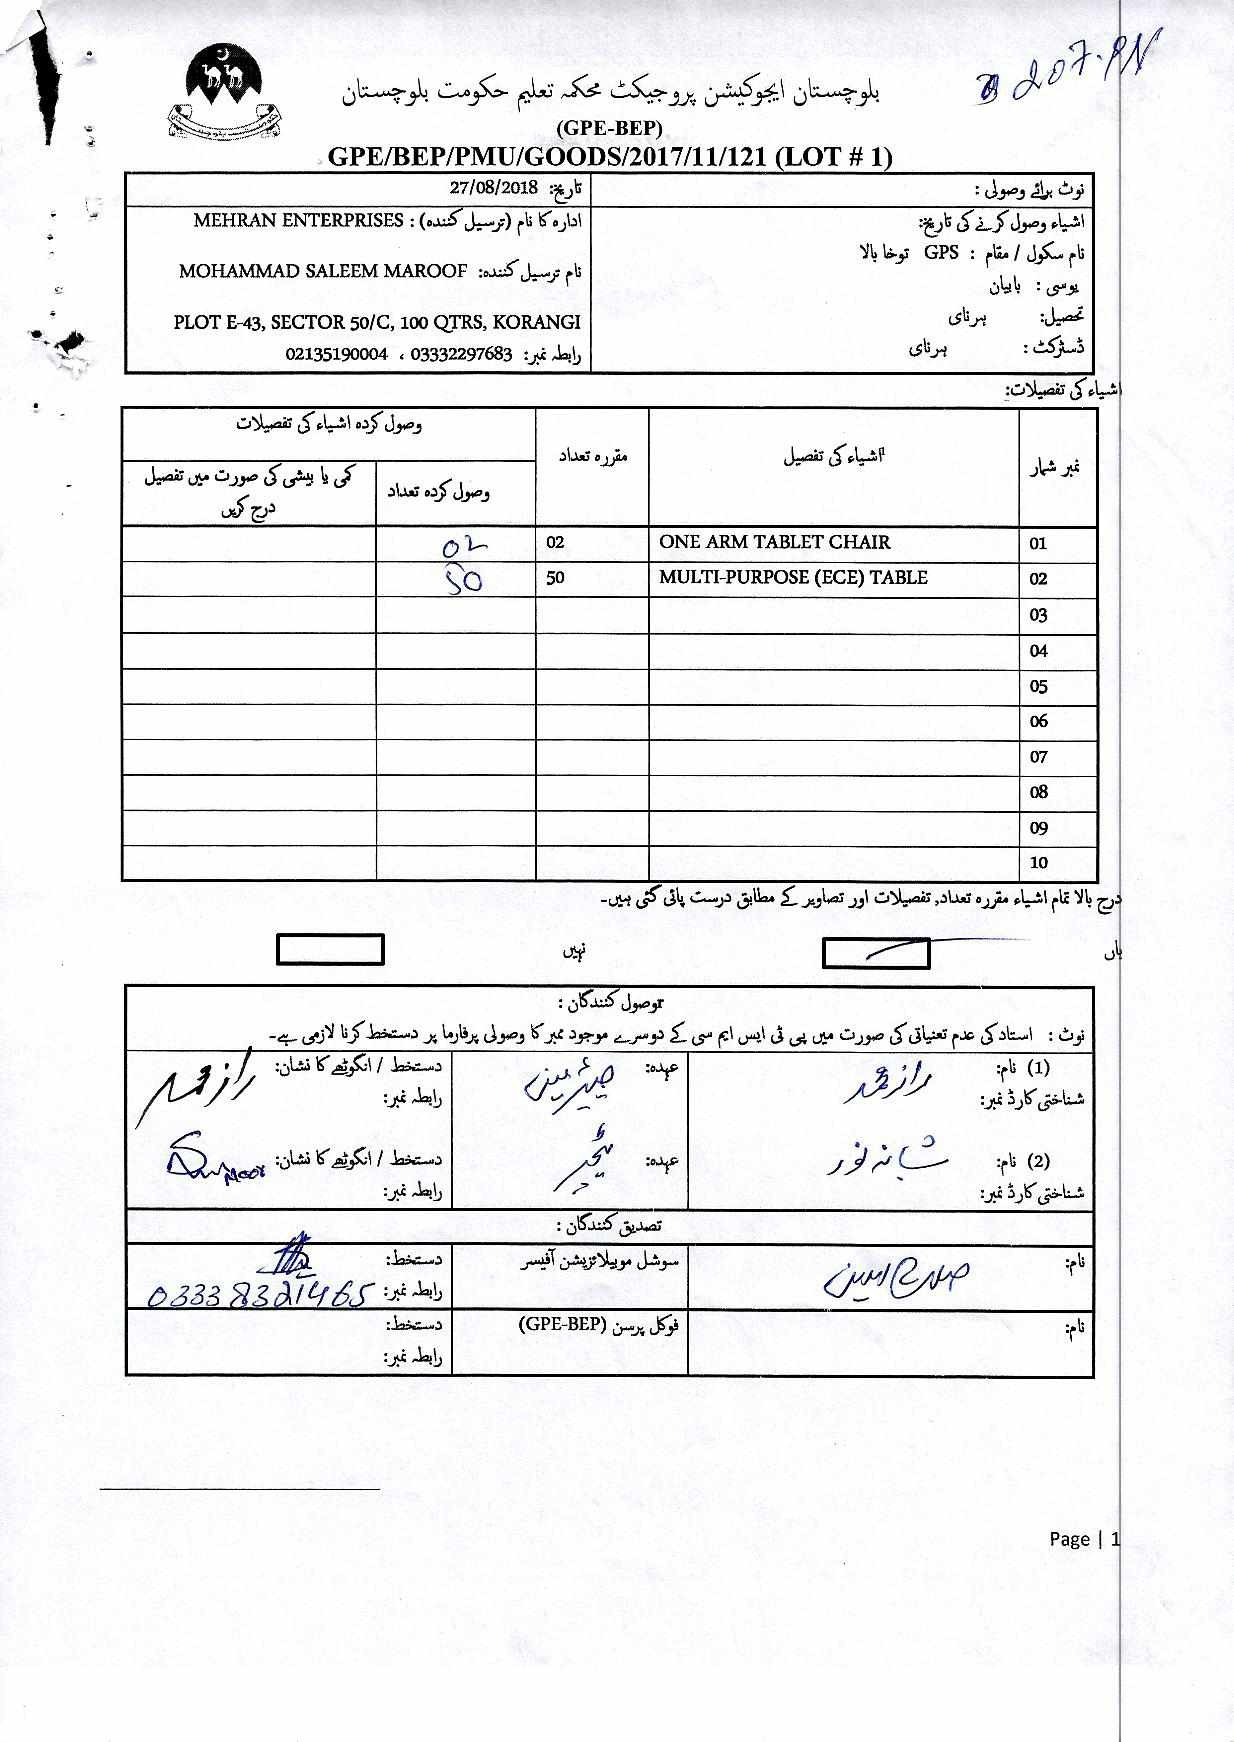 207.PN
بلوچستان ایجوکیشن پروجیکٹ محکمہ تعلیم حکومت بلوچستان
(GPE-BEP)
GPE/BEP/PMU/GOODS/2017/11/121 (LOT # 1)
نوٹ برائے وصولی :
اشیاء وصول کرنے کی تاریخ:
نام سکول / مقام : GPS توخا بالا
یوسی : بابیان
تحصیل: ہرنای
ڈسٹرکٹ : ہرنای
تاریخ: 27/08/2018
ادارہ کا نام (ترسیل کنندہ) : MEHRAN ENTERPRISES
نام ترسیل کنندہ: MOHAMMAD SALEEM MAROOF
PLOT E-43, SECTOR 50/C, 100 QTRS, KORANGI
رابطہ نمبر: 03332297683 ، 02135190004
اشیاء کی تفصیلات:
نمبر شمار اشیاء کی تفصیل مقررہ تعداد وصول کردہ اشیاء کی تفصیلات
وصول کردہ تعداد کمی یا بیشی کی صورت میں تفصیل درج کریں
01 ONE ARM TABLET CHAIR 02 02
02 MULTI-PURPOSE (ECE) TABLE 50 50
03
04
05
06
07
08
09
10
درج بالا تمام اشیاء مقررہ تعداد, تفصیلات اور تصاویر کے مطابق درست پائی گئی ہیں۔
ہاں نہیں
وصول کنندگان :
نوٹ : استاد کی عدم تعیناتی کی صورت میں پی ٹی ایس ایم سی کے دوسرے موجود ممبر کا وصولی پرفارما پر دستخط کرنا لازمی ہے۔
(1) نام: رازمحمد عہدہ: چیئرمین دستخط / انگوٹھے کا نشان: رازمحمد
شناختی کارڈ نمبر: رابطہ نمبر:
(2) نام: شبانہ نور عہدہ: ٹیچر دستخط / انگوٹھے کا نشان:
شناختی کارڈ نمبر: رابطہ نمبر:
تصدیق کنندگان :
نام: سوشل موبیلائزیشن آفیسر دستخط:
رابطہ نمبر: 03338321465
نام: فوکل پرسن (GPE-BEP) دستخط:
رابطہ نمبر:
Page | 1